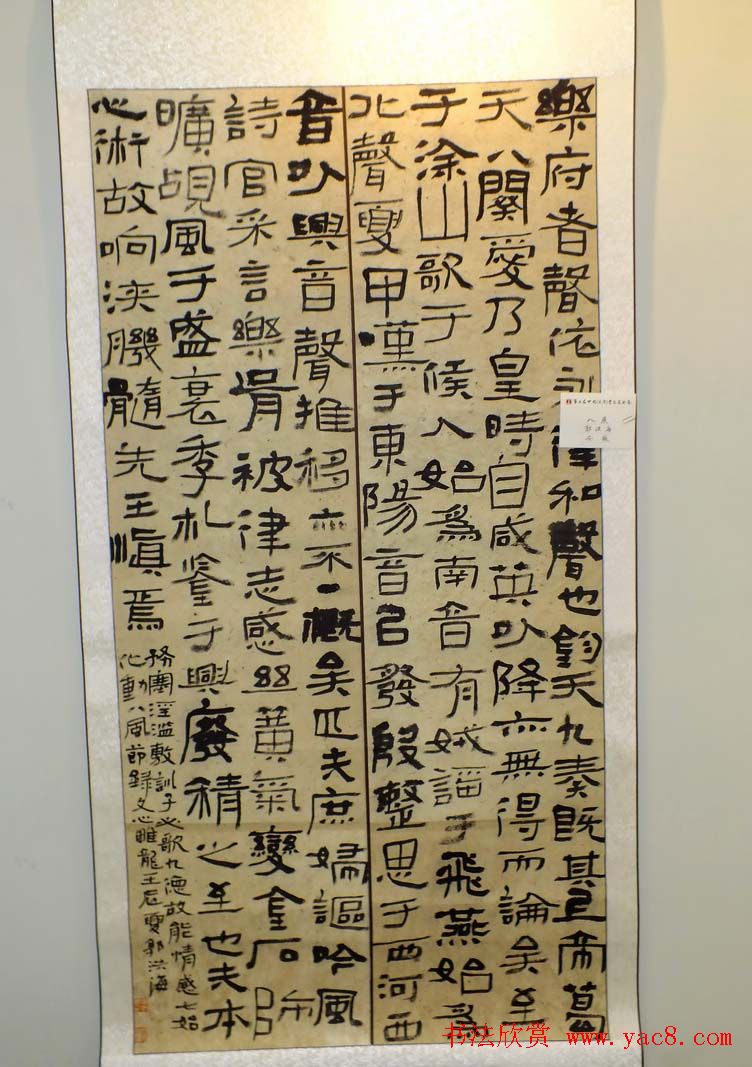 樂府者聲依永律和聲也鈞天九奏既其上帝葛
天八闋爰乃皇時自咸英以降亦無得而論矣至
于涂山歌于候人始爲南音有娀謡于飛燕始爲
北聲夏甲嘆于東陽音㠯發殷整思于西河西
音以興音聲推移亦不一概矣匹夫庶婦謳吟風
詩官采言樂胥被律志感絲黄氣變金石㠯帀
曠覘風于盛衰季札鑒于興廢精之至也夫本
心術故响浹機髓先王慎焉
務塞淫濫敷訓子必歌九德故能情感七始
化動八風節録文心雕龍壬辰夏郭洪海
郭洪海
安徽
书法欣赏 www.yac8.com